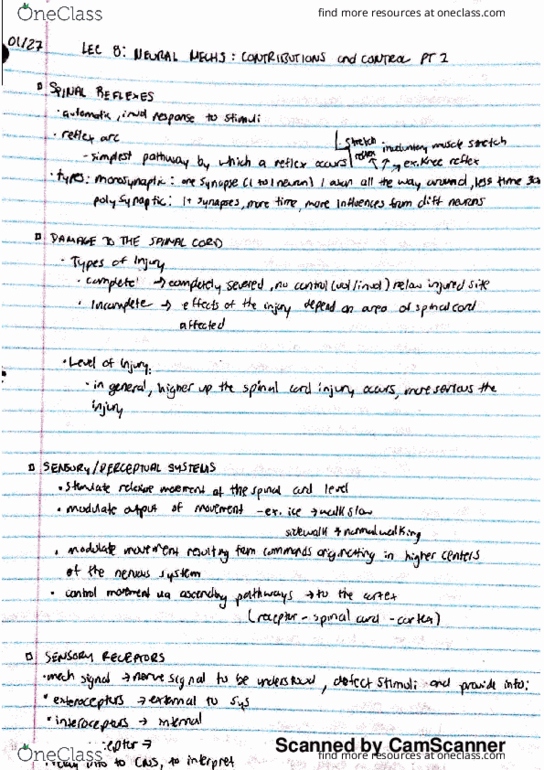 OneClass
find more resources at oneclass.com
01/27
LEC 8: NEURAL MECHS: CONTRIBUTIONS and CONTROL PT 2
SPINAL REFLEXES
• automatic, invol response to stimuli
• reflex arc
stretch reflex involuntary muscle stretch
- simplest pathway by which a reflex occurs → ex. Knee reflex
• types: monosynaptic: one synapse (1 to 1 neuron) 1 axon all the way around, less time
polysynaptic: 1+ synapses, more time, more influences from diff neurons
DAMAGE TO THE SPINAL CORD
• Types of Injury
• complete → completely severed, no control (vol/invol) below injured site
• Incomplete → effects of the injury depend on area of spinal cord
affected
• Level of Injury:
• in general, higher up the spinal cord injury occurs, more serious the
injury
SENSORY/PERCEPTUAL SYSTEMS
• stimulate reflexive movement at the spinal cord level
• modulate output of movement - ex. ice → walk slow
sidewalk → normal walking
• modulate movement resulting from commands originating in higher centers
of the nervous system
• control movement via ascending pathways → to the cortex
(receptor - spinal cord - cortex)
SENSORY RECEPTORS
• mech signal → nerve signal to be understood, detect stimuli and provide info:
• exteroceptors → external to sys
• interoceptors → internal
ceptor →
• relay info to CNS, to interpret
Scanned by CamScanner
OneClass
find more resources at oneclass.com